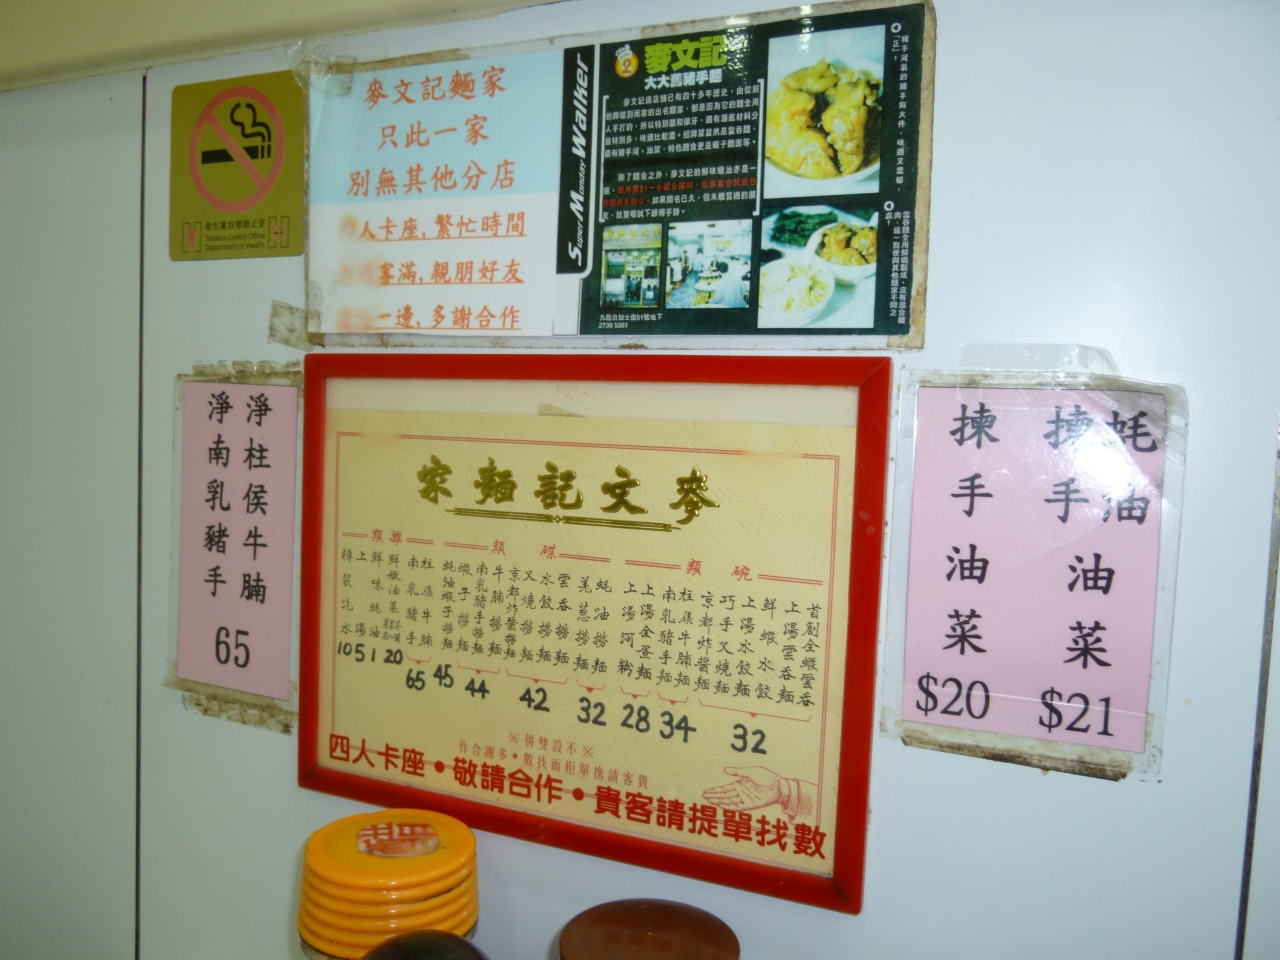 麥文記麵家
只此一家
別無其他分店
人卡座,繁忙時間
客滿,親朋好友
一邊,多謝合作
衛生署控煙辦公室
Tobacco Control Office
Department of Health
Super Monday Walker
2
麥文記
大大舊豬手麵
九龍白加士街51號地下
2736 5561
淨柱侯牛腩
淨南乳豬手
65
家麵記文麥
類雜
類碟
類碗
首創全蝦雲吞
上湯雲吞麵
鮮蝦水餃
上湯水餃麵
巧手叉燒麵
京都炸醬麵
柱侯牛腩麵
南乳豬手麵
上湯全蛋麵
上湯河粉
蚝油撈麵
羌葱撈麵
雲吞撈麵
水餃撈麵
叉燒撈麵
京都炸醬撈麵
牛腩撈麵
南乳豬手撈麵
蝦子撈麵
蚝油蝦子撈麵
柱侯牛腩
南乳豬手
上湯
樽裝汽水
10 5 1 20
65 45 44 42 32 28 34 32
※併雙設不※
作合謝多•數找面柜單擕請客貴
四人卡座•敬請合作•貴客請提單找數
蚝油
揀手油菜
$21
揀手油菜
$20